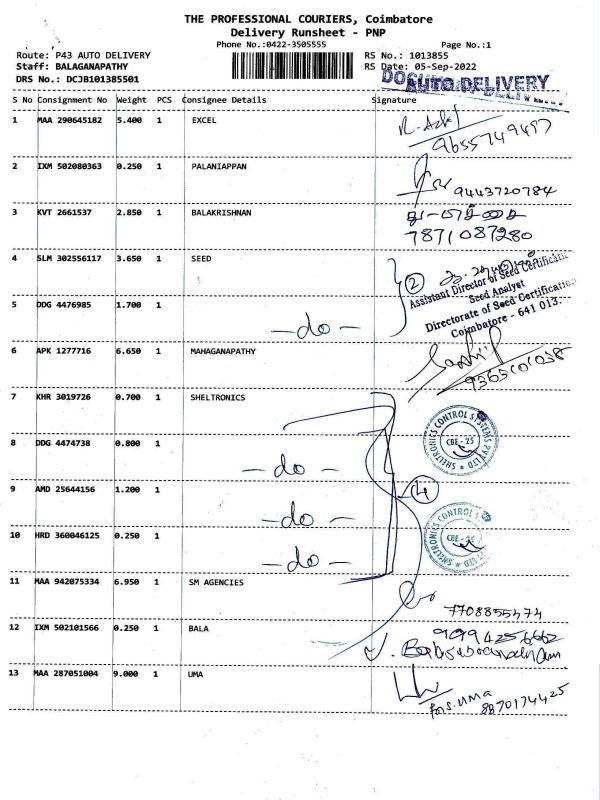 THE PROFESSIONAL COURIERS, Coimbatore
Delivery Runsheet - PNP
Phone No.:0422-3505555 Page No.:1
Route: P43 AUTO DELIVERY RS No.: 1013855
Staff: BALAGANAPATHY RS Date: 05-Sep-2022
DRS No.: DCJB101385501
AUTO DELIVERY
S No Consignment No Weight PCS Consignee Details Signature
1 MAA 290645182 5.400 1 EXCEL
9655749497
2 IXM 502080363 0.250 1 PALANIAPPAN
9443720784
3 KVT 2661537 2.850 1 BALAKRISHNAN
7871087280
4 SLM 302556117 3.650 1 SEED
2
Assistant Director of Seed Certification
Seed Analyst
Directorate of Seed Certification
Coimbatore - 641 013.
5 DDG 4476985 1.700 1
-do-
6 APK 1277716 6.650 1 MAHAGANAPATHY
7 KHR 3019726 0.700 1 SHELTRONICS
SHELTRONICS CONTROL SYSTEMS PVT LTD
CBE - 25
8 DDG 4474738 0.800 1
-do-
9 AMD 25644156 1.200 1
4
-do-
10 HRD 360046125 0.250 1
-do-
11 MAA 942075334 6.950 1 SM AGENCIES
7708855474
12 IXM 502101566 0.250 1 BALA
9994256662
13 MAA 287051004 9.000 1 UMA
uma
8870174425